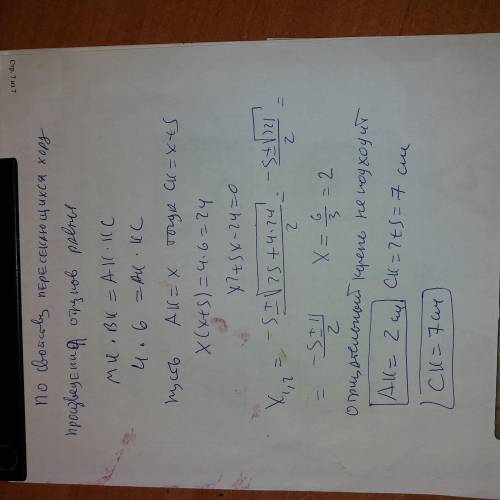 Стр. 1 из 1
По свойству пересекающихся хорд
произведения отрезков равны
MK · BK = AK · KC
4 · 6 = AK · KC
Пусть AK = x тогда CK = x+5
x(x+5) = 4·6 = 24
x²+5x-24=0
x₁,₂ = -5±√25+4·24 / 2 = -5±√121 / 2 =
= -5±11 / 2 x = 6/3 = 2
Отрицательный корень не подходит
AK = 2 см CK = 2+5 = 7 см
CK = 7 см